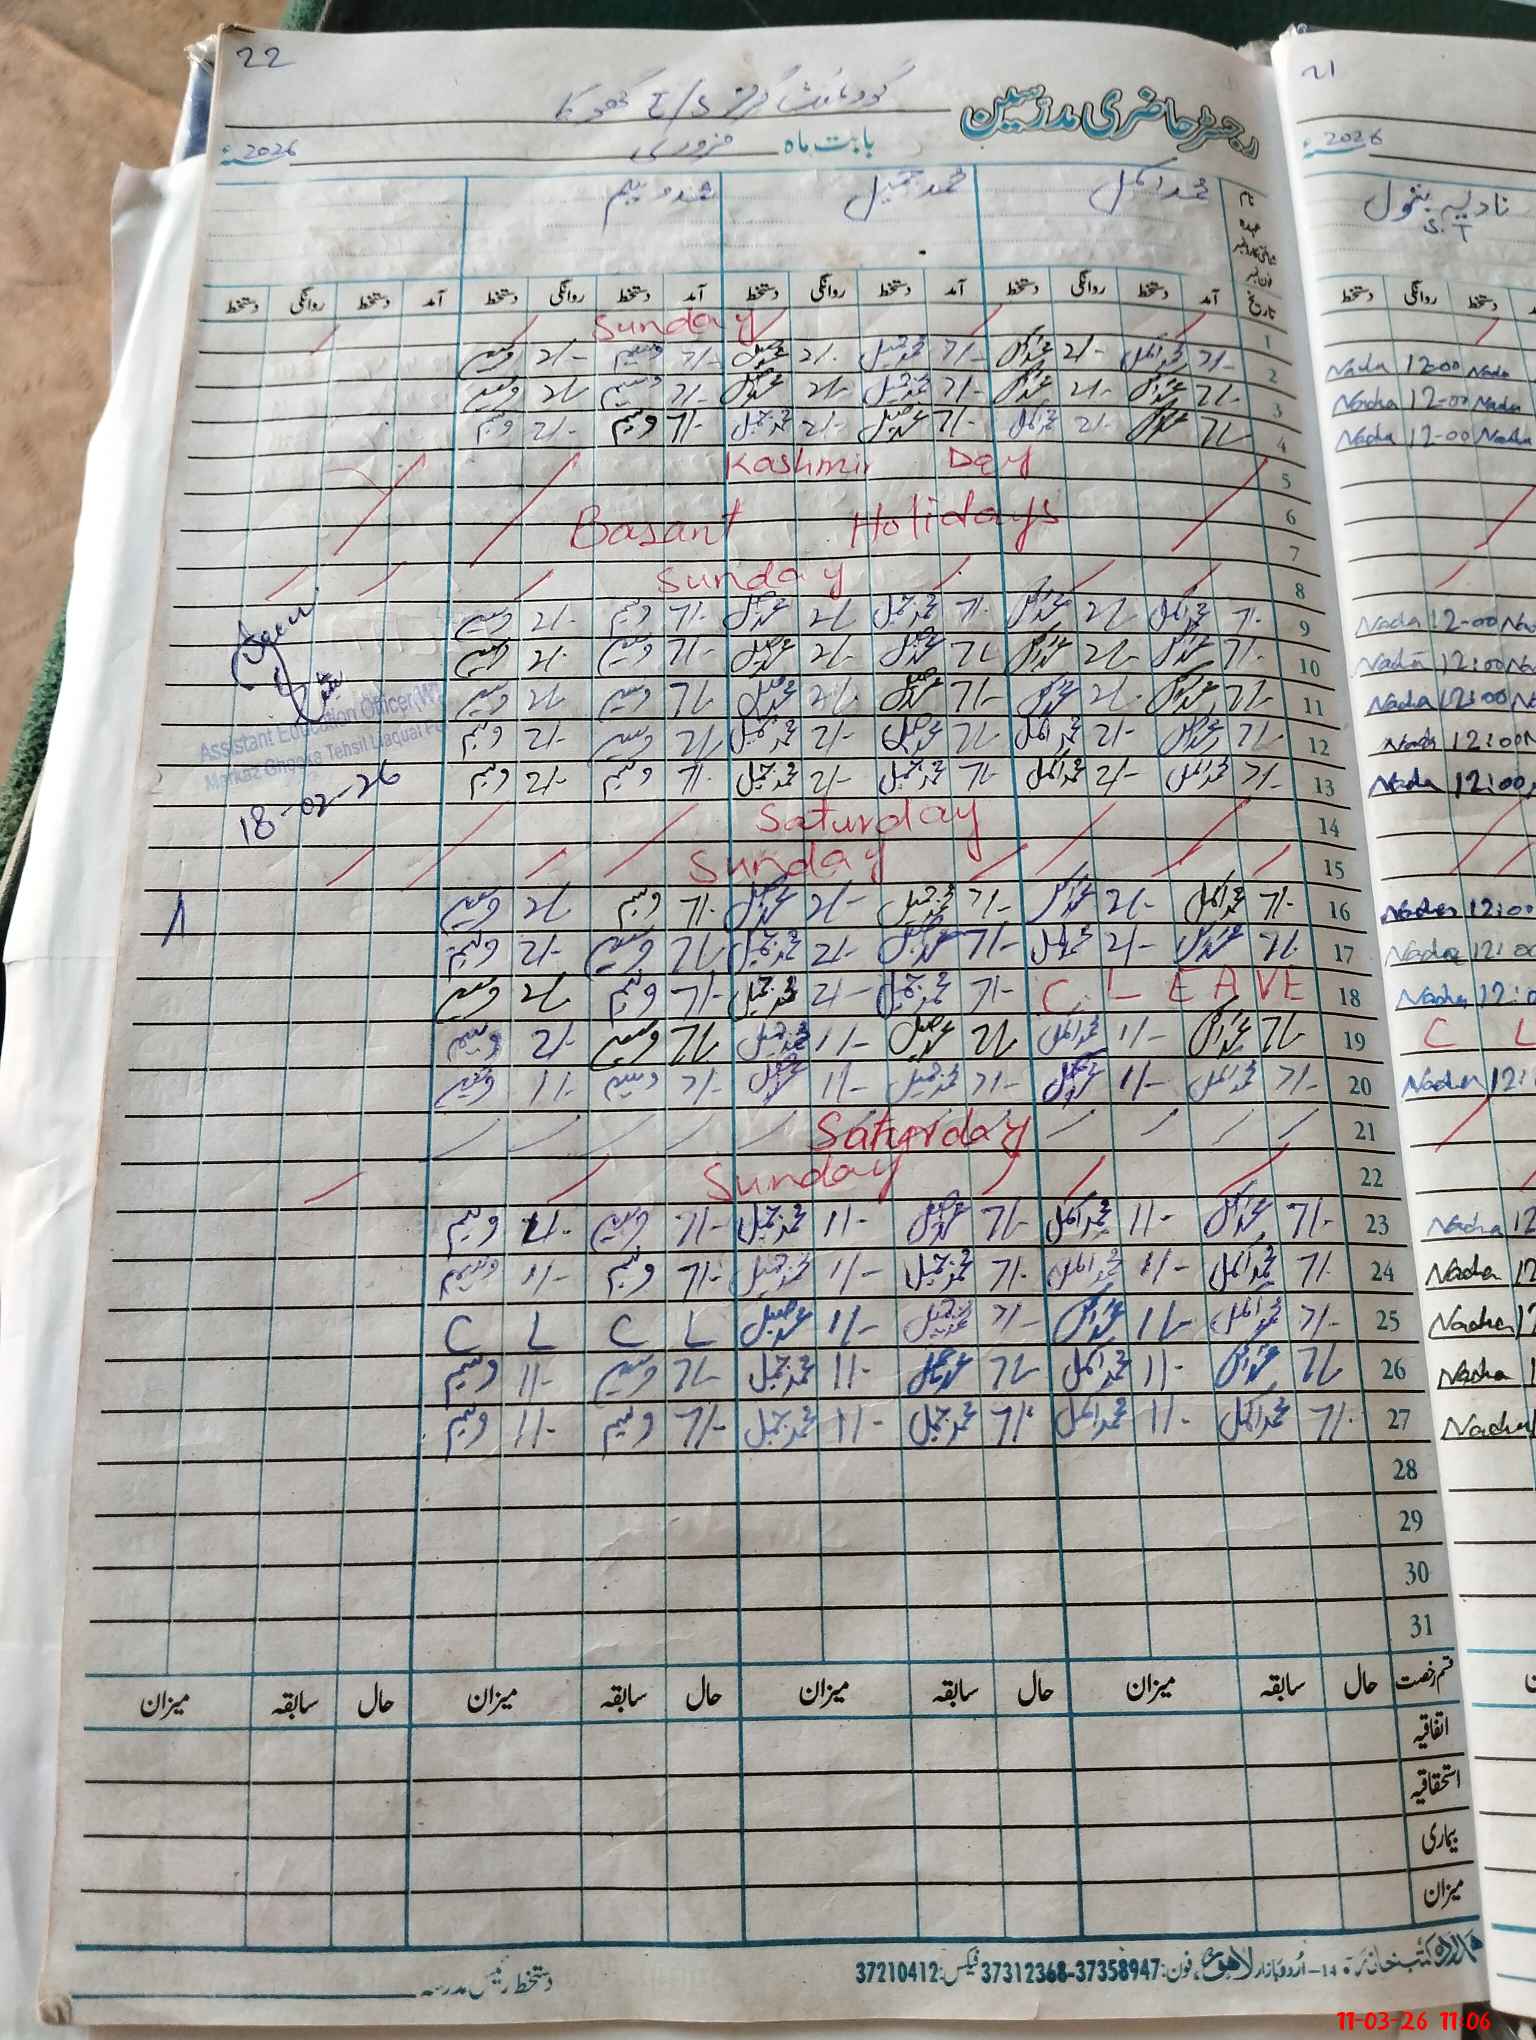 22
رجسٹر حاضری مدرسین گورنمنٹ گرلز E/S گھوگا
بابت ماہ فروری 2026ء
نام محمد اکمل محمد جمیل
عہدہ
شناختی کارڈ نمبر
فون نمبر
تاریخ آمد دستخط روانگی دستخط آمد دستخط روانگی دستخط آمد دستخط روانگی دستخط آمد دستخط روانگی دستخط
1 Sunday
2 7/- محمد اکمل 2/- محمد اکمل 7/- محمد جمیل 2/- محمد جمیل 7/- وسیم 2/- وسیم
3 7/- محمد اکمل 2/- محمد اکمل 7/- محمد جمیل 2/- محمد جمیل 7/- وسیم 2/- وسیم
4 7/- محمد اکمل 2/- محمد اکمل 7/- محمد جمیل 2/- محمد جمیل 7/- وسیم 2/- وسیم
5 Kashmir Day
6 Basant Holidays
7
8 Sunday
9 7/- محمد اکمل 2/- محمد اکمل 7/- محمد جمیل 2/- محمد جمیل 7/- وسیم 2/- وسیم
10 7/- محمد اکمل 2/- محمد اکمل 7/- محمد جمیل 2/- محمد جمیل 7/- وسیم 2/- وسیم
11 7/- محمد اکمل 2/- محمد اکمل 7/- محمد جمیل 2/- محمد جمیل 7/- وسیم 2/- وسیم
12 7/- محمد اکمل 2/- محمد اکمل 7/- محمد جمیل 2/- محمد جمیل 7/- وسیم 2/- وسیم
13 7/- محمد اکمل 2/- محمد اکمل 7/- محمد جمیل 2/- محمد جمیل 7/- وسیم 2/- وسیم
Assistant Education Officer(W)
Markaz Ghogka Tehsil Liaquat
18-02-26
14 Saturday
15 Sunday
16 7/- محمد اکمل 2/- محمد اکمل 7/- محمد جمیل 2/- محمد جمیل 7/- وسیم 2/- وسیم
17 7/- محمد اکمل 2/- محمد اکمل 7/- محمد جمیل 2/- محمد جمیل 7/- وسیم 2/- وسیم
18 C. LEAVE 7/- محمد جمیل 2/- محمد جمیل 7/- وسیم 2/- وسیم
19 7/- محمد اکمل 1/- محمد اکمل 7/- محمد جمیل 1/- محمد جمیل 7/- وسیم 2/- وسیم
20 7/- محمد اکمل 1/- محمد اکمل 7/- محمد جمیل 1/- محمد جمیل 7/- وسیم 1/- وسیم
21 Saturday
22 Sunday
23 7/- محمد اکمل 1/- محمد اکمل 7/- محمد جمیل 1/- محمد جمیل 7/- وسیم 1/- وسیم
24 7/- محمد اکمل 1/- محمد اکمل 7/- محمد جمیل 1/- محمد جمیل 7/- وسیم 1/- وسیم
25 7/- محمد اکمل 1/- محمد اکمل 7/- محمد جمیل 1/- محمد جمیل C L C L
26 7/- محمد اکمل 1/- محمد اکمل 7/- محمد جمیل 1/- محمد جمیل 7/- وسیم 1/- وسیم
27 7/- محمد اکمل 1/- محمد اکمل 7/- محمد جمیل 1/- محمد جمیل 7/- وسیم 1/- وسیم
28
29
30
31
قسم رخصت حال سابقہ میزان حال سابقہ میزان حال سابقہ میزان حال سابقہ میزان
اتفاقیہ
استحقاقیہ
بیماری
میزان
14-اُردو بازار لاہور، فون: 37358947-37312368 فیکس: 37210412
دستخط رئیس مدرسہ
21
2026ء
نادیہ بتول
S.T
دستخط روانگی دستخط
Nadia 12:00 Nadia
Nadia 12-00 Nadia
Nadia 12-00 Nadia
Nadia 12-00
Nadia 12:00
Nadia 12:00
Nadia 12:00
Nadia 12:00
Nadia 12:00
Nadia 12:00
Nadia
C L
Nadia
Nadia
Nadia
Nadia
Nadia
Nadia
11-03-26 11:06